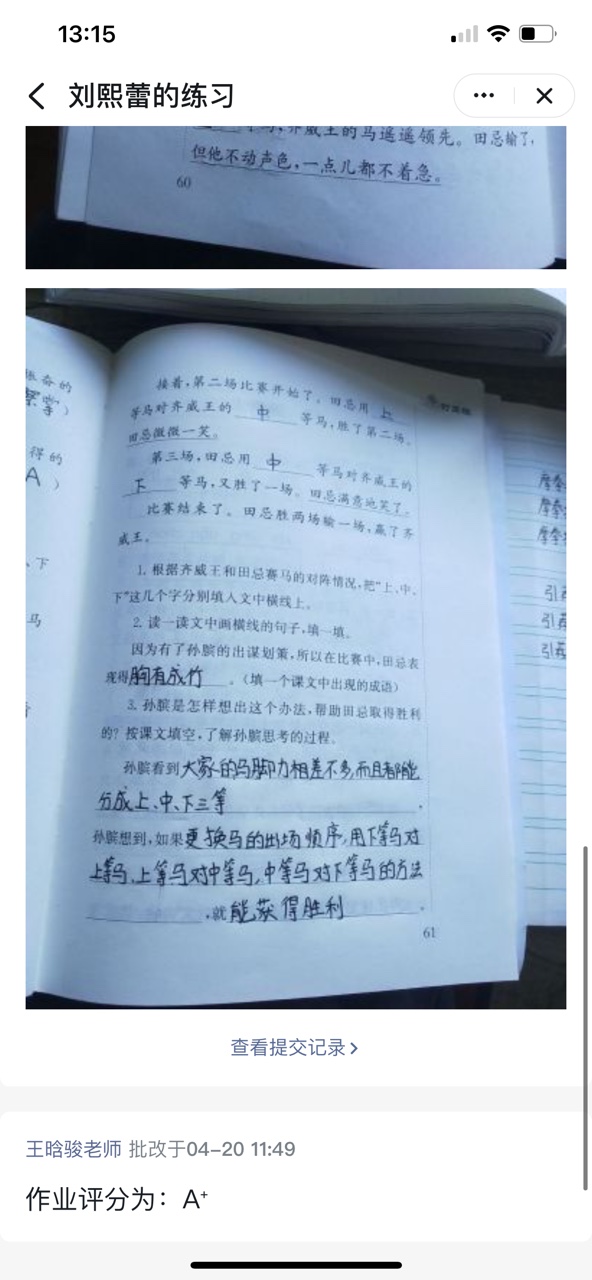 13:15
刘熙蕾的练习
齐威王的马遥遥领先。田忌输了,
但他不动声色,一点儿都不着急。
60
接着,第二场比赛开始了。田忌用 上
等马对齐威王的 中 等马,胜了第二场。
田忌微微一笑。
第三场,田忌用 中 等马对齐威王的
下 等马,又胜了一场。田忌满意地笑了。
比赛结束了。田忌胜两场输一场,赢了齐
威王。
1. 根据齐威王和田忌赛马的对阵情况,把“上、中、
下”这几个字分别填入文中横线上。
2. 读一读文中画横线的句子,填一填。
因为有了孙膑的出谋划策,所以在比赛中,田忌表
现得胸有成竹。(填一个课文中出现的成语)
3. 孙膑是怎样想出这个办法,帮助田忌取得胜利
的?按课文填空,了解孙膑思考的过程。
孙膑看到大家的马脚力相差不多,而且都能
分成上、中、下三等。
孙膑想到,如果更换马的出场顺序,用下等马对
上等马、上等马对中等马,中等马对下等马的方法
,就能获得胜利。
61
奋的
得的
A )
、下
马
引
引
引
查看提交记录
王晗骏老师 批改于04-20 11:49
作业评分为:A⁺